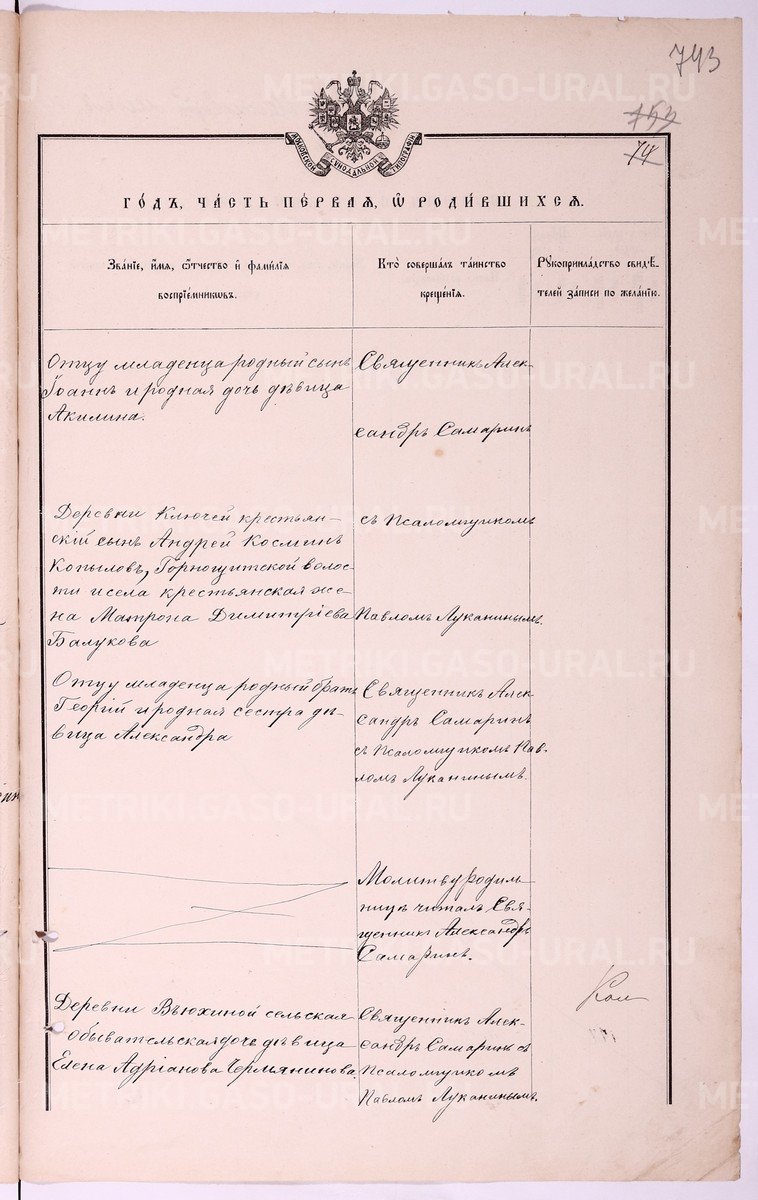 743
153
74
МОСКОВСКОЙ СѴНОДАЛЬНОЙ ТИПОГРАФІИ
ГО́ДЪ, ЧА́СТЬ ПЕ́РВАЯ, Ѡ РОДИ́ВШИХСЯ.
Зва́ніе, и́мя, ѻ́тчество и фами́лія
воспріе́мниковъ.
Кто̀ соверша́лъ та́инство
креще́нія.
Рꙋкоприкла́дство свидѣ́-
телей за́писи по жела́нію.
Отцу младенца родный сынъ
Іоаннъ и родная дочь дѣвица
Акилина.
Священникъ Алек-
сандръ Самаринъ
Деревни Ключей крестьян-
скій сынъ Андрей Косминъ
Копыловъ, Горнощитской волос-
ти и села крестьянская же-
на Матрона Димитріева
Балукова
съ Псаломщикомъ
Павломъ Луканинымъ.
Отцу младенца родный братъ
Георгій и родная сестра дѣ-
вица Александра
Священникъ Алек-
сандръ Самаринъ
съ Псаломщикомъ Пав-
ломъ Луканинымъ.
Молитву родиль-
ницѣ читалъ Свя-
щенникъ Александръ
Самаринъ.
Деревни Вьюхиной сельская
обывательская дочь дѣвица
Елена Адріанова Чермянинова.
Священникъ Алек-
сандръ Самаринъ съ
Псаломщикомъ
Павломъ Луканинымъ.
METRIKI.GASO-URAL.RU